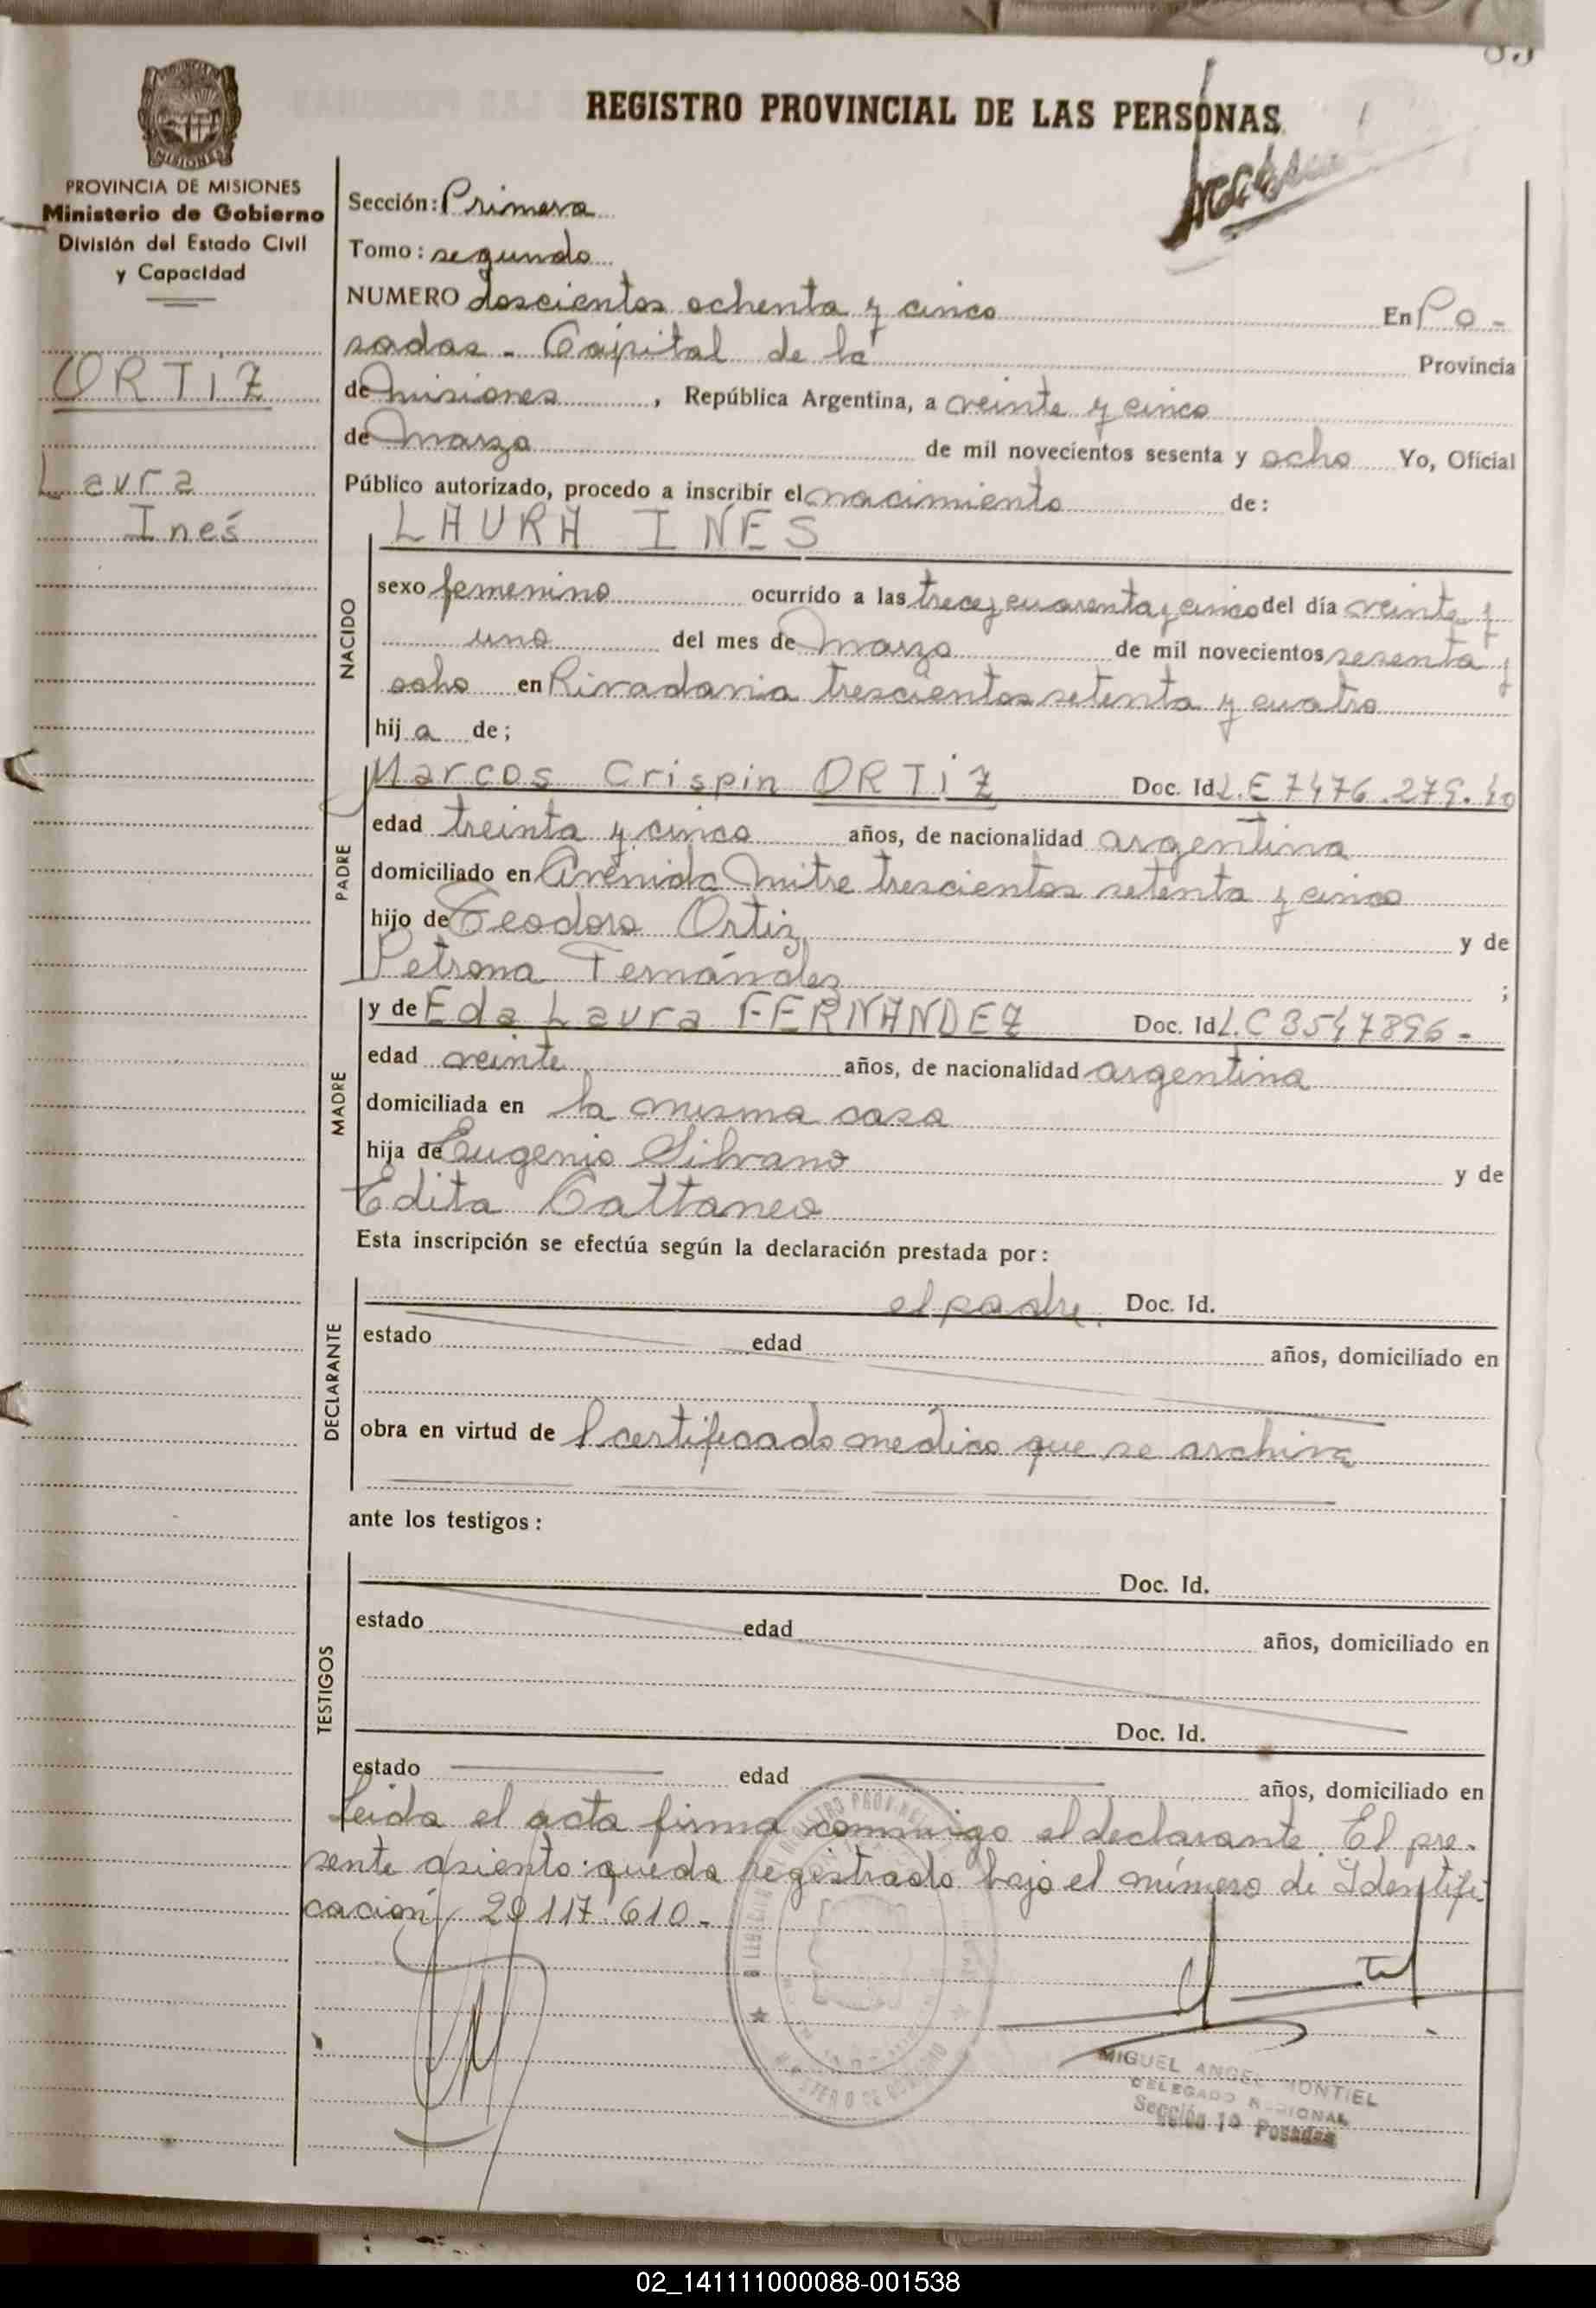 REGISTRO PROVINCIAL DE LAS PERSONAS
PROVINCIA DE MISIONES
Ministerio de Gobierno
División del Estado Civil
y Capacidad
ORTIZ
Laura
Inés
Sección: Primera
Tomo: segundo
NUMERO doscientos ochenta y cinco En Po-
sadas - Capital de la Provincia
de misiones, República Argentina, a veinte y cinco
de marzo de mil novecientos sesenta y ocho Yo, Oficial
Público autorizado, procedo a inscribir el nacimiento de:
LAURA INES
NACIDO
sexo femenino ocurrido a las trece y cuarenta y cinco del día veinte y
uno del mes de marzo de mil novecientos sesenta y
ocho en Rivadavia trescientos setenta y cuatro
hij a de;
PADRE
Marcos Crispin ORTIZ Doc. Id. L.E 7476.279.
edad treinta y cinco años, de nacionalidad argentina
domiciliado en Avenida mitre trescientos setenta y cinco
hijo de Teodoro Ortiz y de
Petrona Fernández ;
MADRE
y de Eda Laura FERNANDEZ Doc. Id L.C 3547896-
edad veinte años, de nacionalidad argentina
domiciliada en la misma casa
hija de Eugenio Silvano y de
Edita Cattaneo
Esta inscripción se efectúa según la declaración prestada por:
DECLARANTE
el padre. Doc. Id.
estado edad años, domiciliado en
obra en virtud de l certificado medico que se archiva
ante los testigos:
TESTIGOS
Doc. Id.
estado edad años, domiciliado en
Doc. Id.
estado edad años, domiciliado en
Leida el acta firma conmigo el declarante. El pre-
sente asiento: queda registrado bajo el número de Identifi
cación 20.117.610.-
MIGUEL ANGEL MONTIEL
DELEGADO REGIONAL
Sección 1º Posadas
02_141111000088-001538